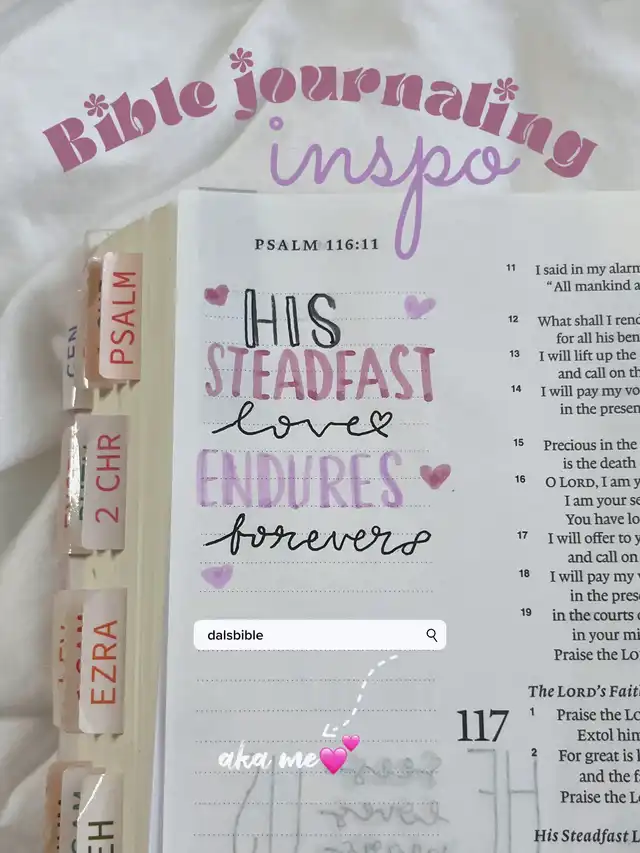 Bible journaling
inspo
PSALM 116:11
HIS
STEADFAST
love
ENDURES
forever
dalsbible
aka me💕
PSALM
GEN
2 CHR
EZRA
EH
11 I said in my alarm
"All mankind a
12 What shall I rend
for all his ben
13 I will lift up the
and call on th
14 I will pay my vo
in the presen
15 Precious in the
is the death
16 O LORD, I am y
I am your se
You have lo
17 I will offer to y
and call on
18 I will pay my v
in the pres
19 in the courts o
in your mi
Praise the Lo
The LORD'S Fait
117
1 Praise the Lo
Extol him
2 For great is h
and the f
Praise the Lo
His Steadfast L